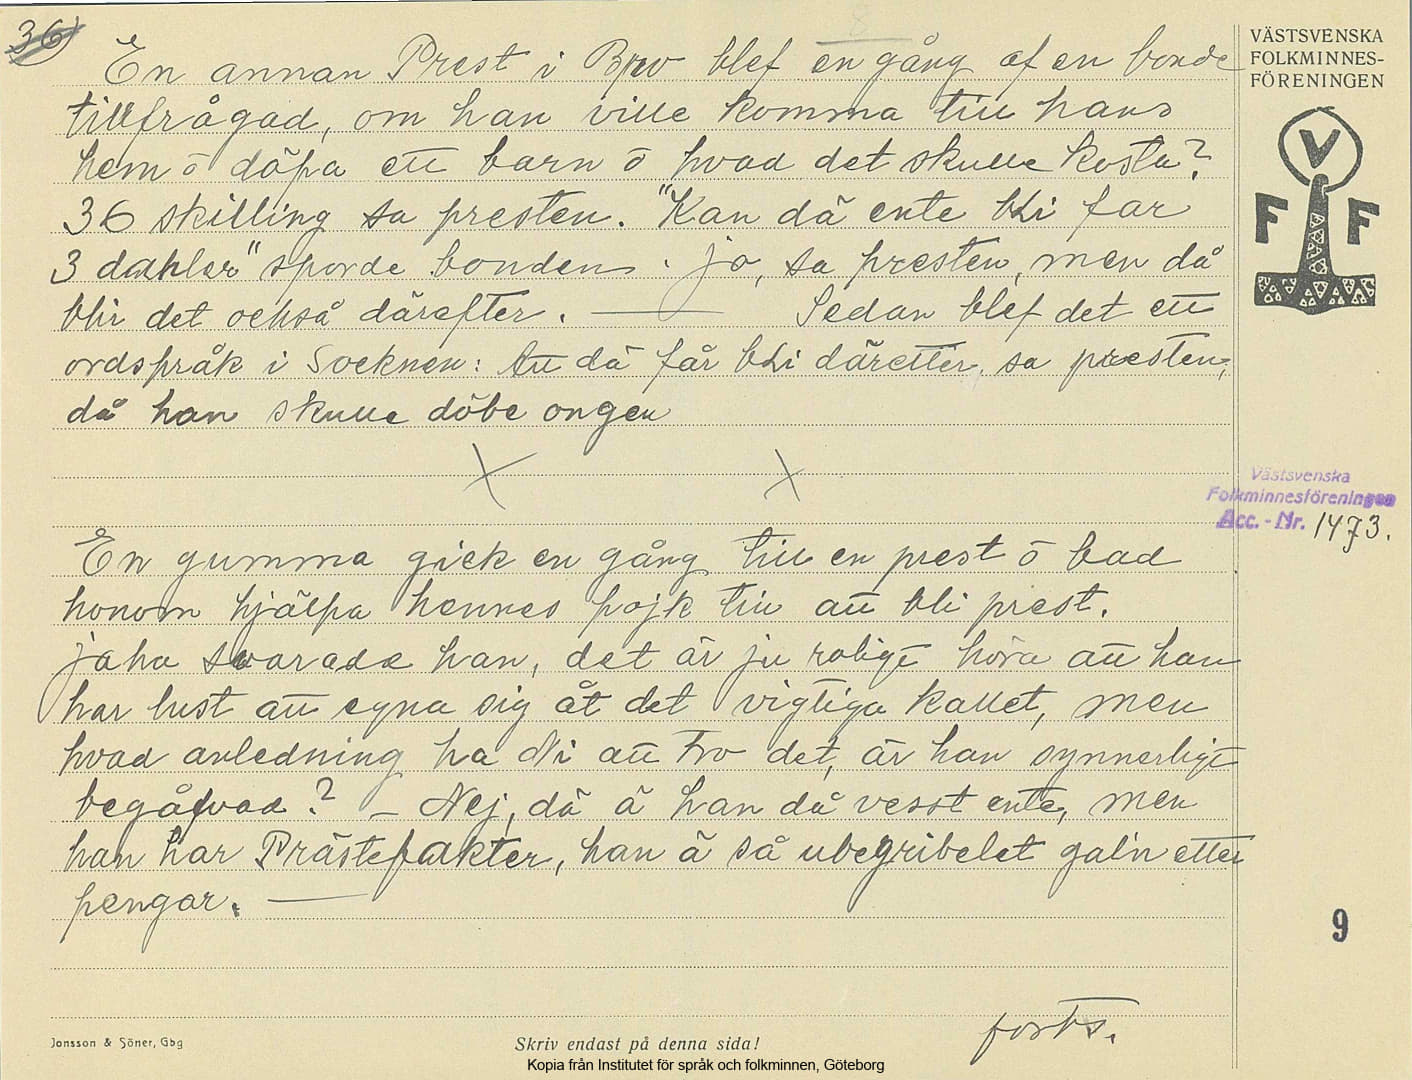 36)
8
En annan Prest i Bro blef en gång af en bonde
tillfrågad, om han ville komma till hans
hem ō döpa ett barn ō hvad det skulle kosta?
36 skilling sa presten. "Kan dä ente bli far
3 dahler" sporde bonden. ja, sa presten, men då
blir det också därefter. — Sedan blef det ett
ordspråk i Socknen: Att dä får bli däretter, sa presten,
då han skulle döbe ongen
X X
En gumma gick en gång till en prest ō bad
honom hjälpa hennes pojk till att bli prest.
jaha svarade han, det är ju roligt höra att han
har lust att egna sig åt det vigtiga kallet, men
hvad anledning ha Ni att tro det, är han synnerligt
begåfvad? – Nej, dä ä han då vesst ente, men
han har Prästefakter, han ä så ubegribelet galn etter
pengar. —
forts.
VÄSTSVENSKA
FOLKMINNES-
FÖRENINGEN
V
F F
Västsvenska
Folkminnesföreningen
Acc. - Nr. 1473.
9
Jonsson & Söner, Gbg
Skriv endast på denna sida!
Kopia från Institutet för språk och folkminnen, Göteborg